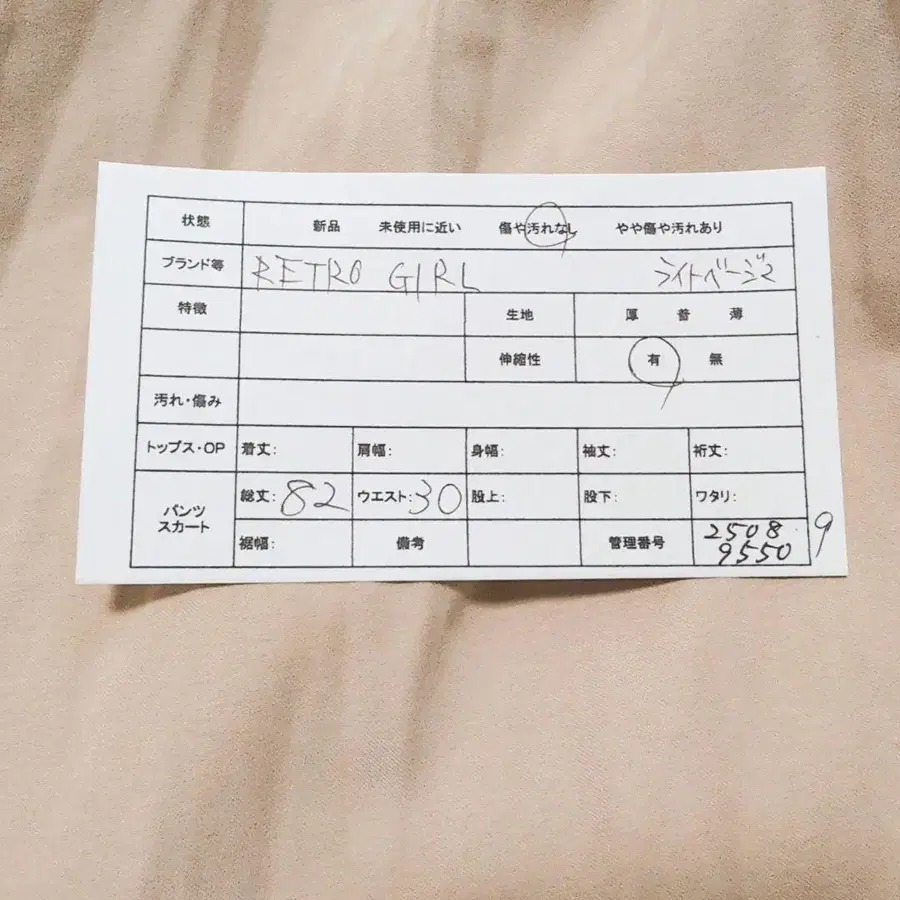 状態 新品 未使用に近い 傷や汚れなし やや傷や汚れあり
ブランド等 RETRO GIRL ライトベージュ
特徴 生地 厚 普 薄
伸縮性 有 無
汚れ・傷み
トップス・OP 着丈: 肩幅: 身幅: 袖丈: 裄丈:
パンツ スカート 総丈: 82 ウエスト: 30 股上: 股下: ワタリ:
裾幅: 備考 管理番号 2508 9
9550